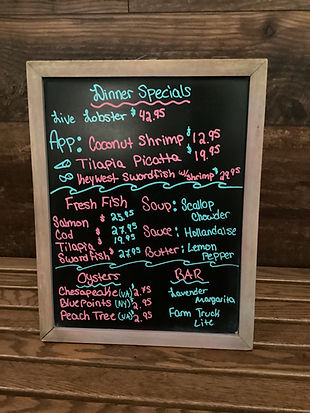 Dinner Specials
Live Lobster $42.95
App: Coconut Shrimp $12.95
Tilapia Picatta $19.95
Key West Swordfish w/shrimp $29.95
Fresh Fish
Salmon $25.95
Cod $27.95
Tilapia $19.95
Swordfish $27.95
Soup: Scallop
Chowder
Sauce: Hollandaise
Butter: Lemon
Pepper
Oysters
Chesapeake (VA) $2.75
Blue Points (NY) $2.95
Peach Tree (VA) $2.95
BAR
Lavender
Margarita
Farm Truck
Lite